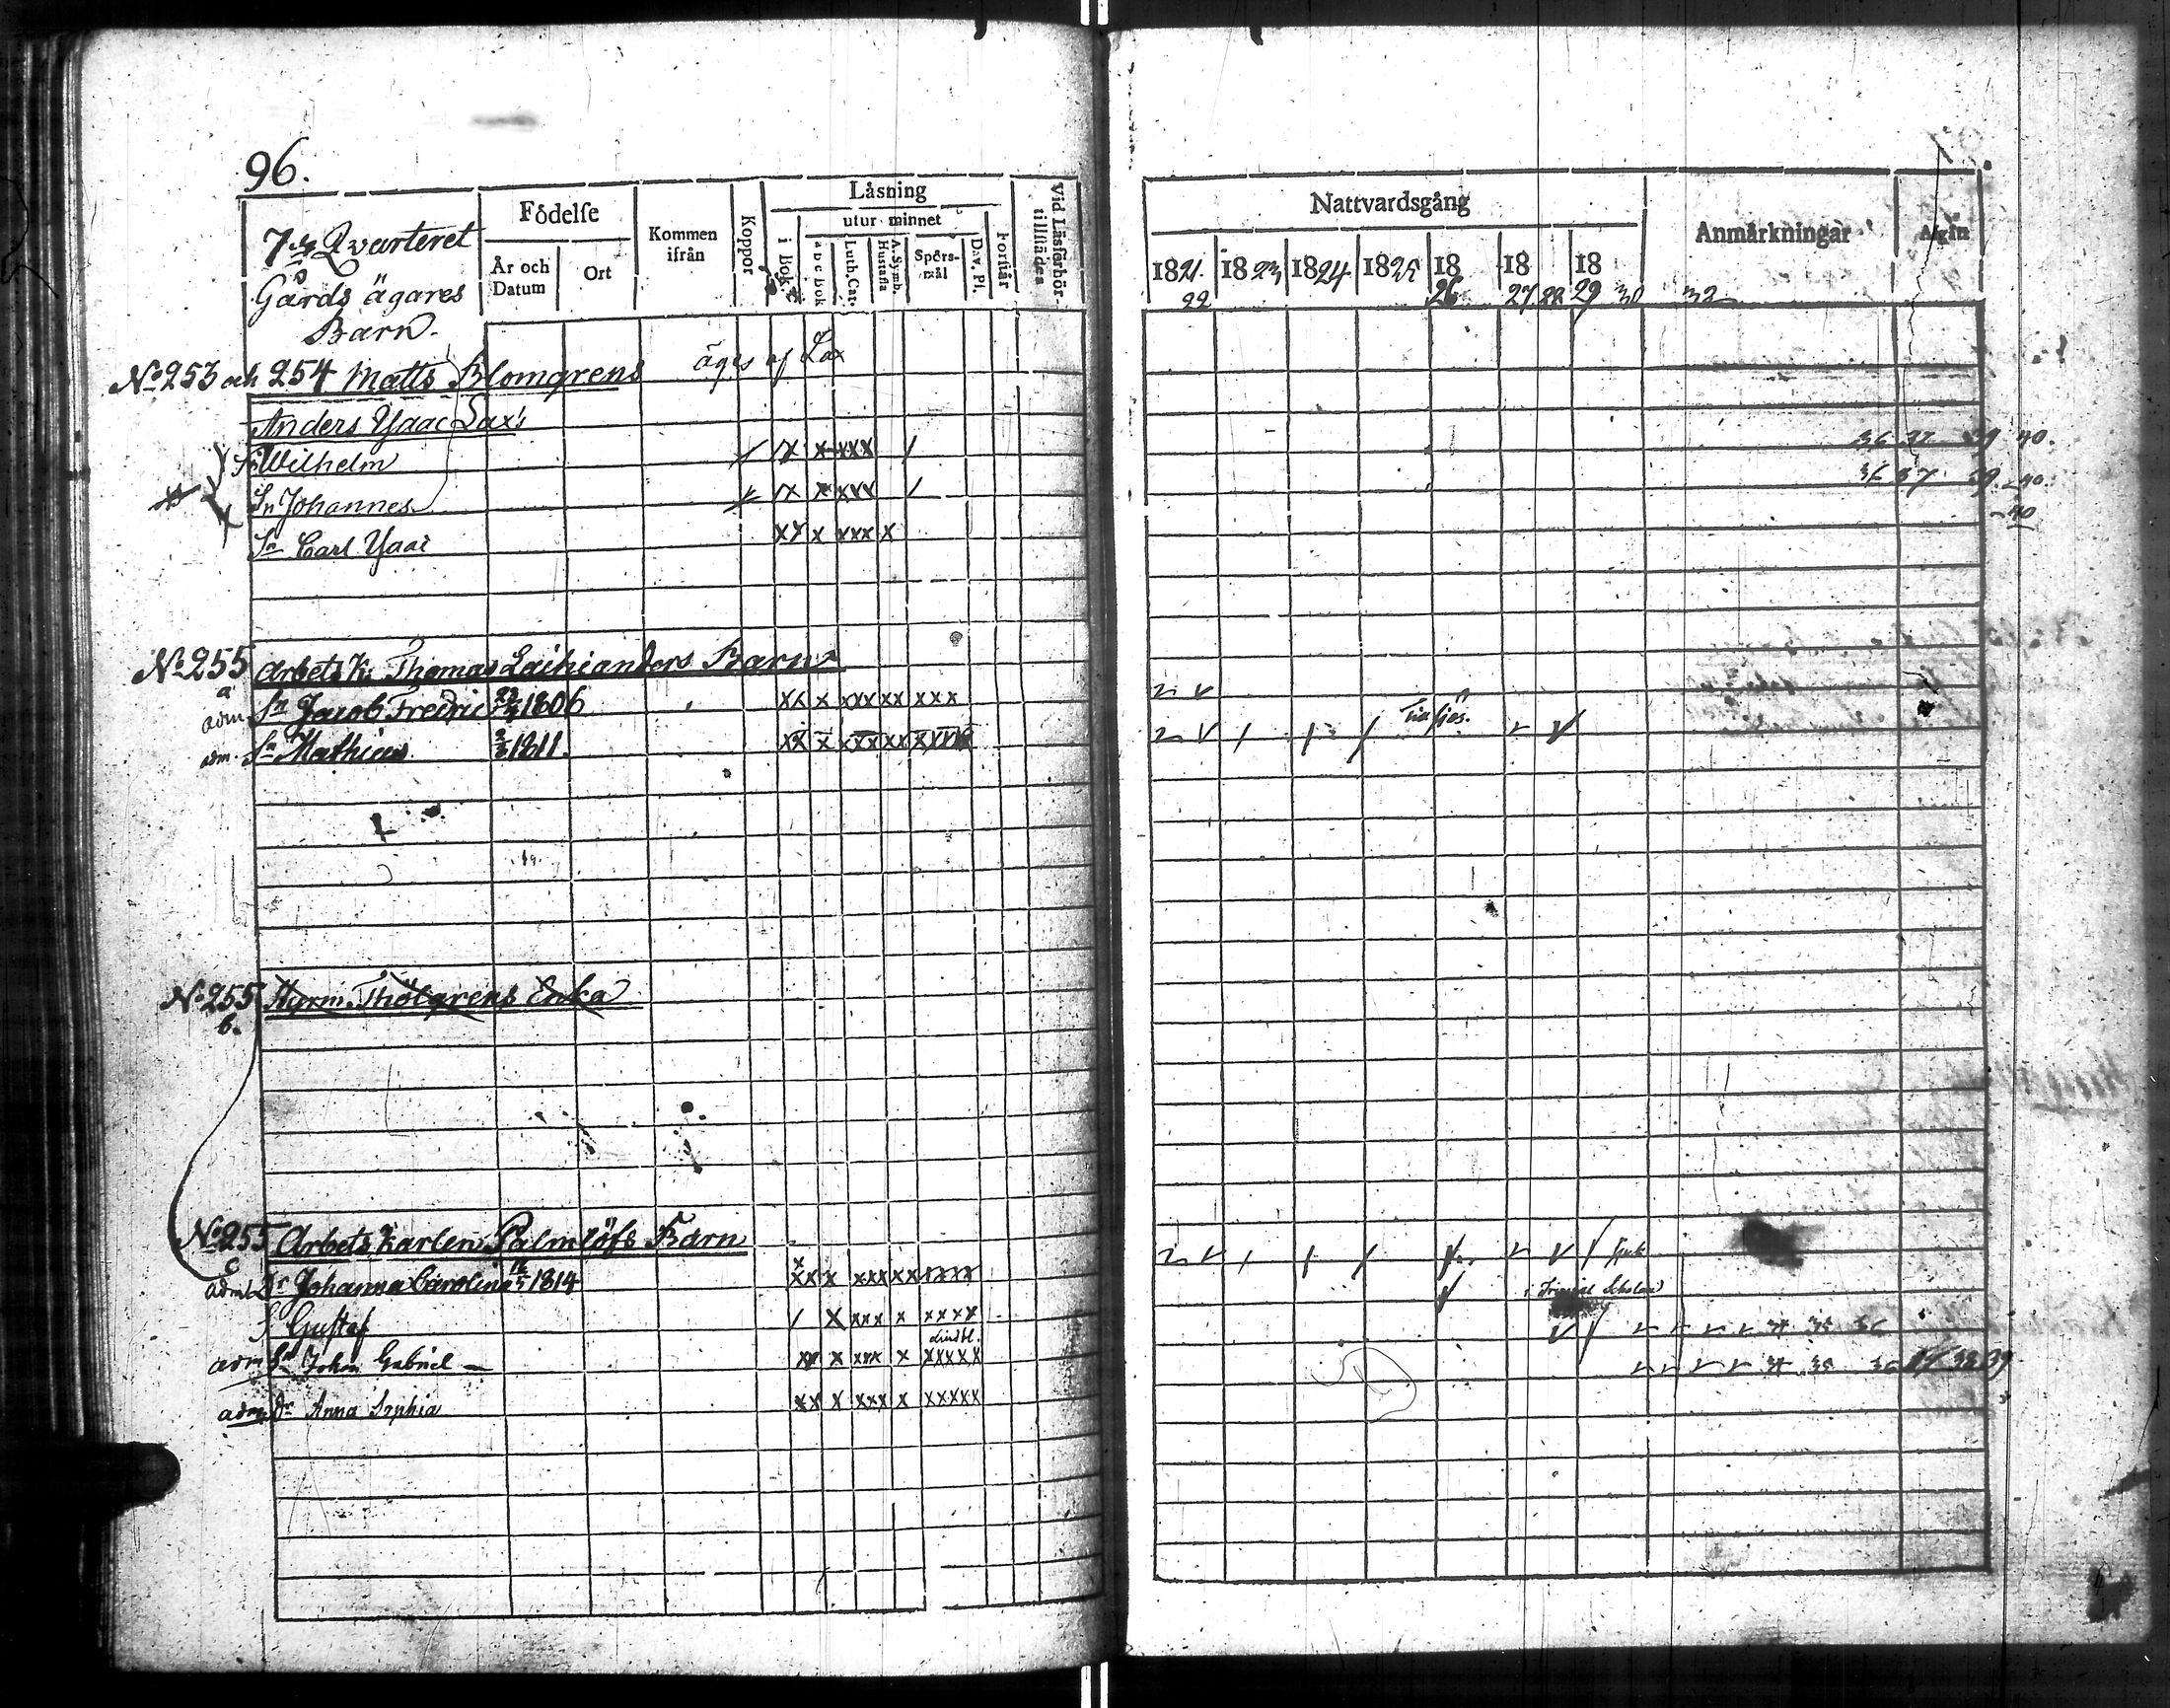 96.
7de Qvarteret
Gårds ägares
Barn.
Födelse
År och Datum
Ort
Kommen ifrån
Koppor
Låsning
i Bok
utur minnet
a b c bok
Luth. Cat.
A. Symb. Hustafla
Spörsmål
Dav. Pl.
Forstår
vid Läsförhör tillstädes
Nattvardsgång
1821. 22
1823
1824
1825
18 26
18 27 28
18 29 30
32
Anmärkningar
Afgått
No 253 och 254 Matts Blomgrens äges af Lax
Anders Ysaac Lax's
Sn Wilhelm / 1x x xxx / 36 37 39 40.
Sn Johannes 1x x xxx / 36 37 39 40.
Sn Carl Ysac xx x xxx x 40
No 255 a Arbets K. Thomas Laihianders Barn
adm Sn Jacob Fredric 1806 xx x xxx xx xxx
adm. Sn Mathias 1811. xx x xxx xx
No 255 b. Hyrm. Thölgrens Enka
No 255 c Arbets Karlen Palmlöfs Barn
adm Dr Johanna Carolina 16/5 1814 xx x xxx xx
S Gustaf / x xxx x xxxx Trivial Scholan
adm Sn Johan Gabriel xx x xxx x xxxxx 34 35 36
adm Dr Anna Sophia xx x xxx x xxxxx 34 35 36 37 38 39